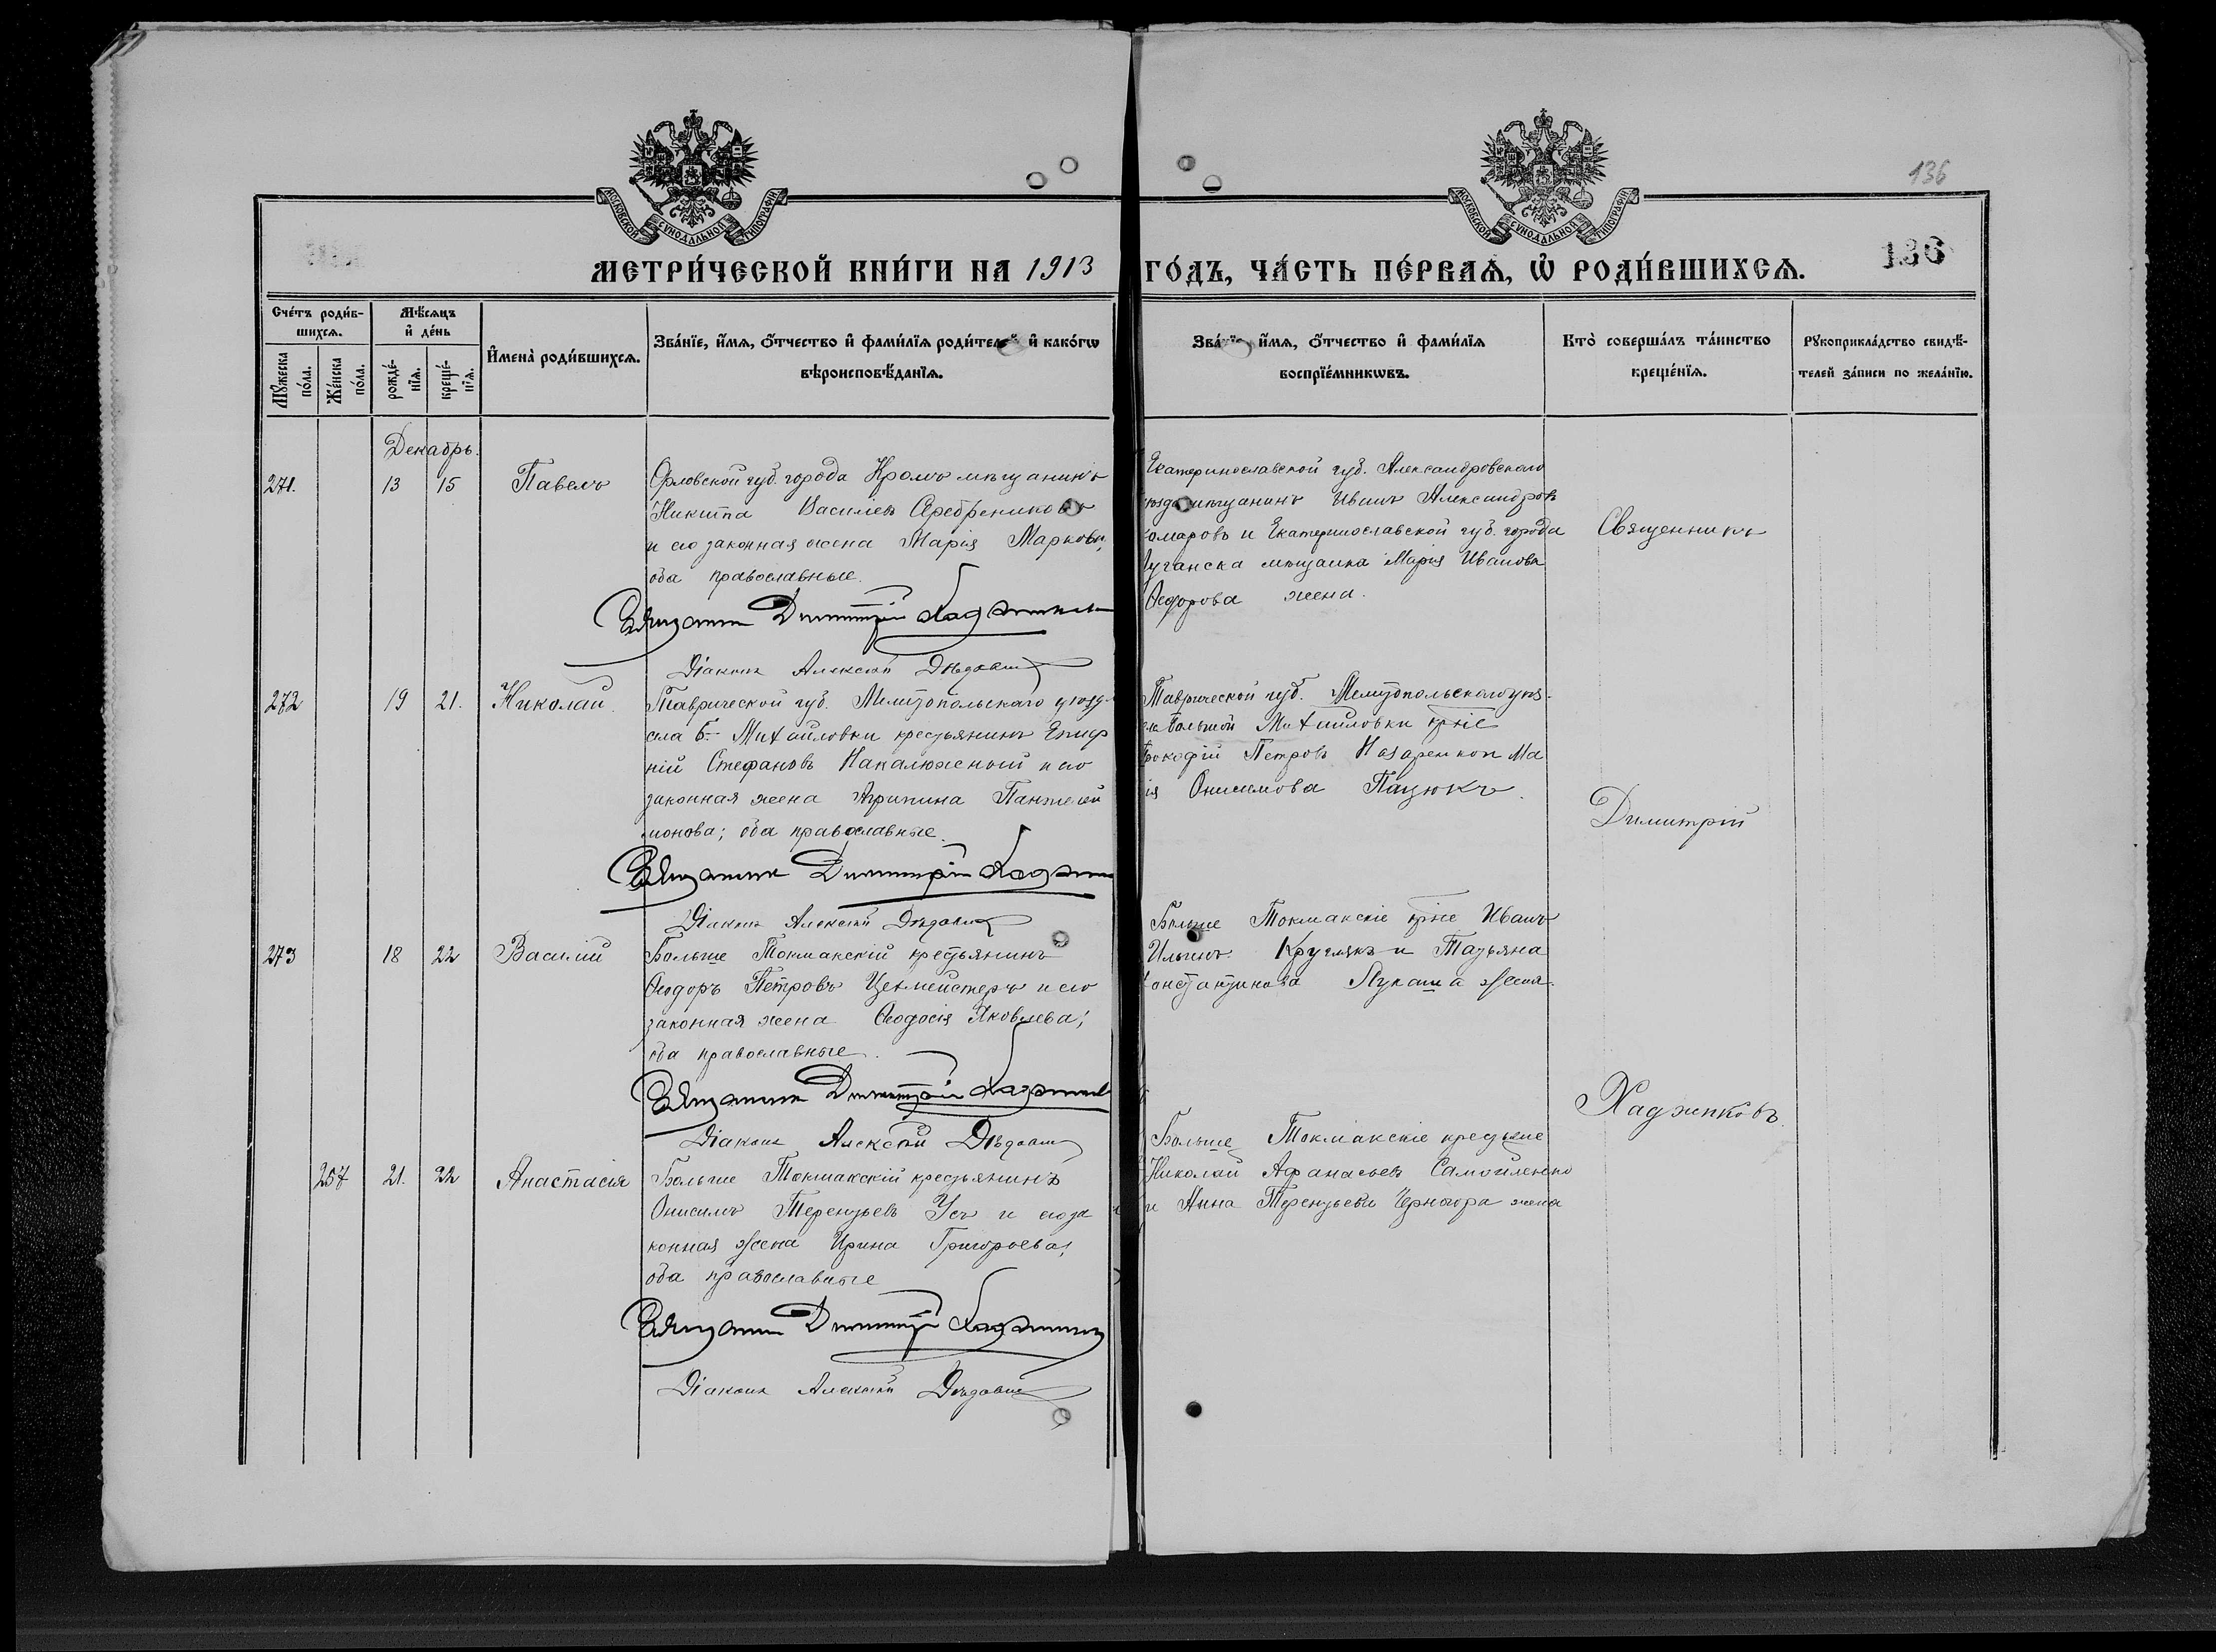 136
136
МОСКОВСКОЙ СѴНОДАЛЬНОЙ ТИПОГРАФІИ
МОСКОВСКОЙ СѴНОДАЛЬНОЙ ТИПОГРАФІИ
МЕТРИ́ЧЕСКОЙ КНИ́ГИ НА 1913 ГО́ДЪ, ЧА́СТЬ ПЕ́РВАѦ, Ѡ҆ РОДИ́ВШИХСѦ.
Счетъ роди́в-
шихсѧ.
Мꙋжеска по́ла.
Же́нска по́ла.
Мѣ́сѧцъ
и҆ де́нь
рожде́-
нїѧ.
креще́-
нїѧ.
И҆мена̀ роди́вшихсѧ.
Зва́нїе, и҆́мѧ, ѻ҆́тчество и҆ фами́лїѧ роди́телей и҆ како́гѡ
вѣроисповѣ́данїѧ.
Зва́нїе, и҆́мѧ, ѻ҆́тчество и҆ фами́лїѧ
воспрїе́мникѡвъ.
Кто̀ соверша́лъ та́инство
креще́нїѧ.
Рꙋкоприкла́дство свидѣ́-
телей за́писи по жела́нїю.
Декабрь.
271. 13 15 Павелъ
Орловской губ. города Кромъ мѣщанинъ
Никита Васильев Серебрениковъ
и его законная жена Марія Маркова,
оба православные.
Священник Димитрій Хаджинов
Діаконъ Алексѣй Дѣдович
Екатеринославской губ. Александровскаго
уѣзда мѣщанинъ Иванъ Александров
омаровъ и Екатеринославской губ. города
уганска мѣщанка Марія Иванова
Ѳедорова жена.
Священникъ
272 19 21. Николай
Таврической губ. Мелитопольскаго уѣзд
сла Б.- Михайловки крестьянинъ Епиф
ній Стефановъ Накалюжный и его
законная жена Агрипина Пантелей
монова; оба православные.
Священник Димитрій Хаджи
Діаконъ Алексѣй Дѣдович
Таврической губ. Мелитопольскаго уѣз-
Большой Михайловки кр͠не
рокофій Петровъ Назаренко и Ма
ія Онисимова Пацюкъ.
Димитрій
273 18 22 Василій
Больше Токмакскій крестьянинъ
Ѳеодоръ Петровъ Цехмейстеръ и его
законная жена Ѳеодосія Яковлева;
оба православные.
Священник Димитрій Хаджинов
Діаконъ Алексѣй Дѣдович
Больше Токмакскіе кр͠не Иванъ
Ильинъ Круглякъ и Татьяна
онстантинова Лукаша жена.
Хаджиновъ.
257 21. 22 Анастасія
Больше Токмакскій крестьянинъ
Онисимъ Терентьевъ Усъ и его за
конная жена Ирина Григорьева;
оба православные
Священник Димитрій Хаджинов
Діаконъ Алексѣй Дѣдович
Больше Токмакскіе крестьяне
Николай Афанасьевъ Самойленко
и Анна Терентьева Черногора жена